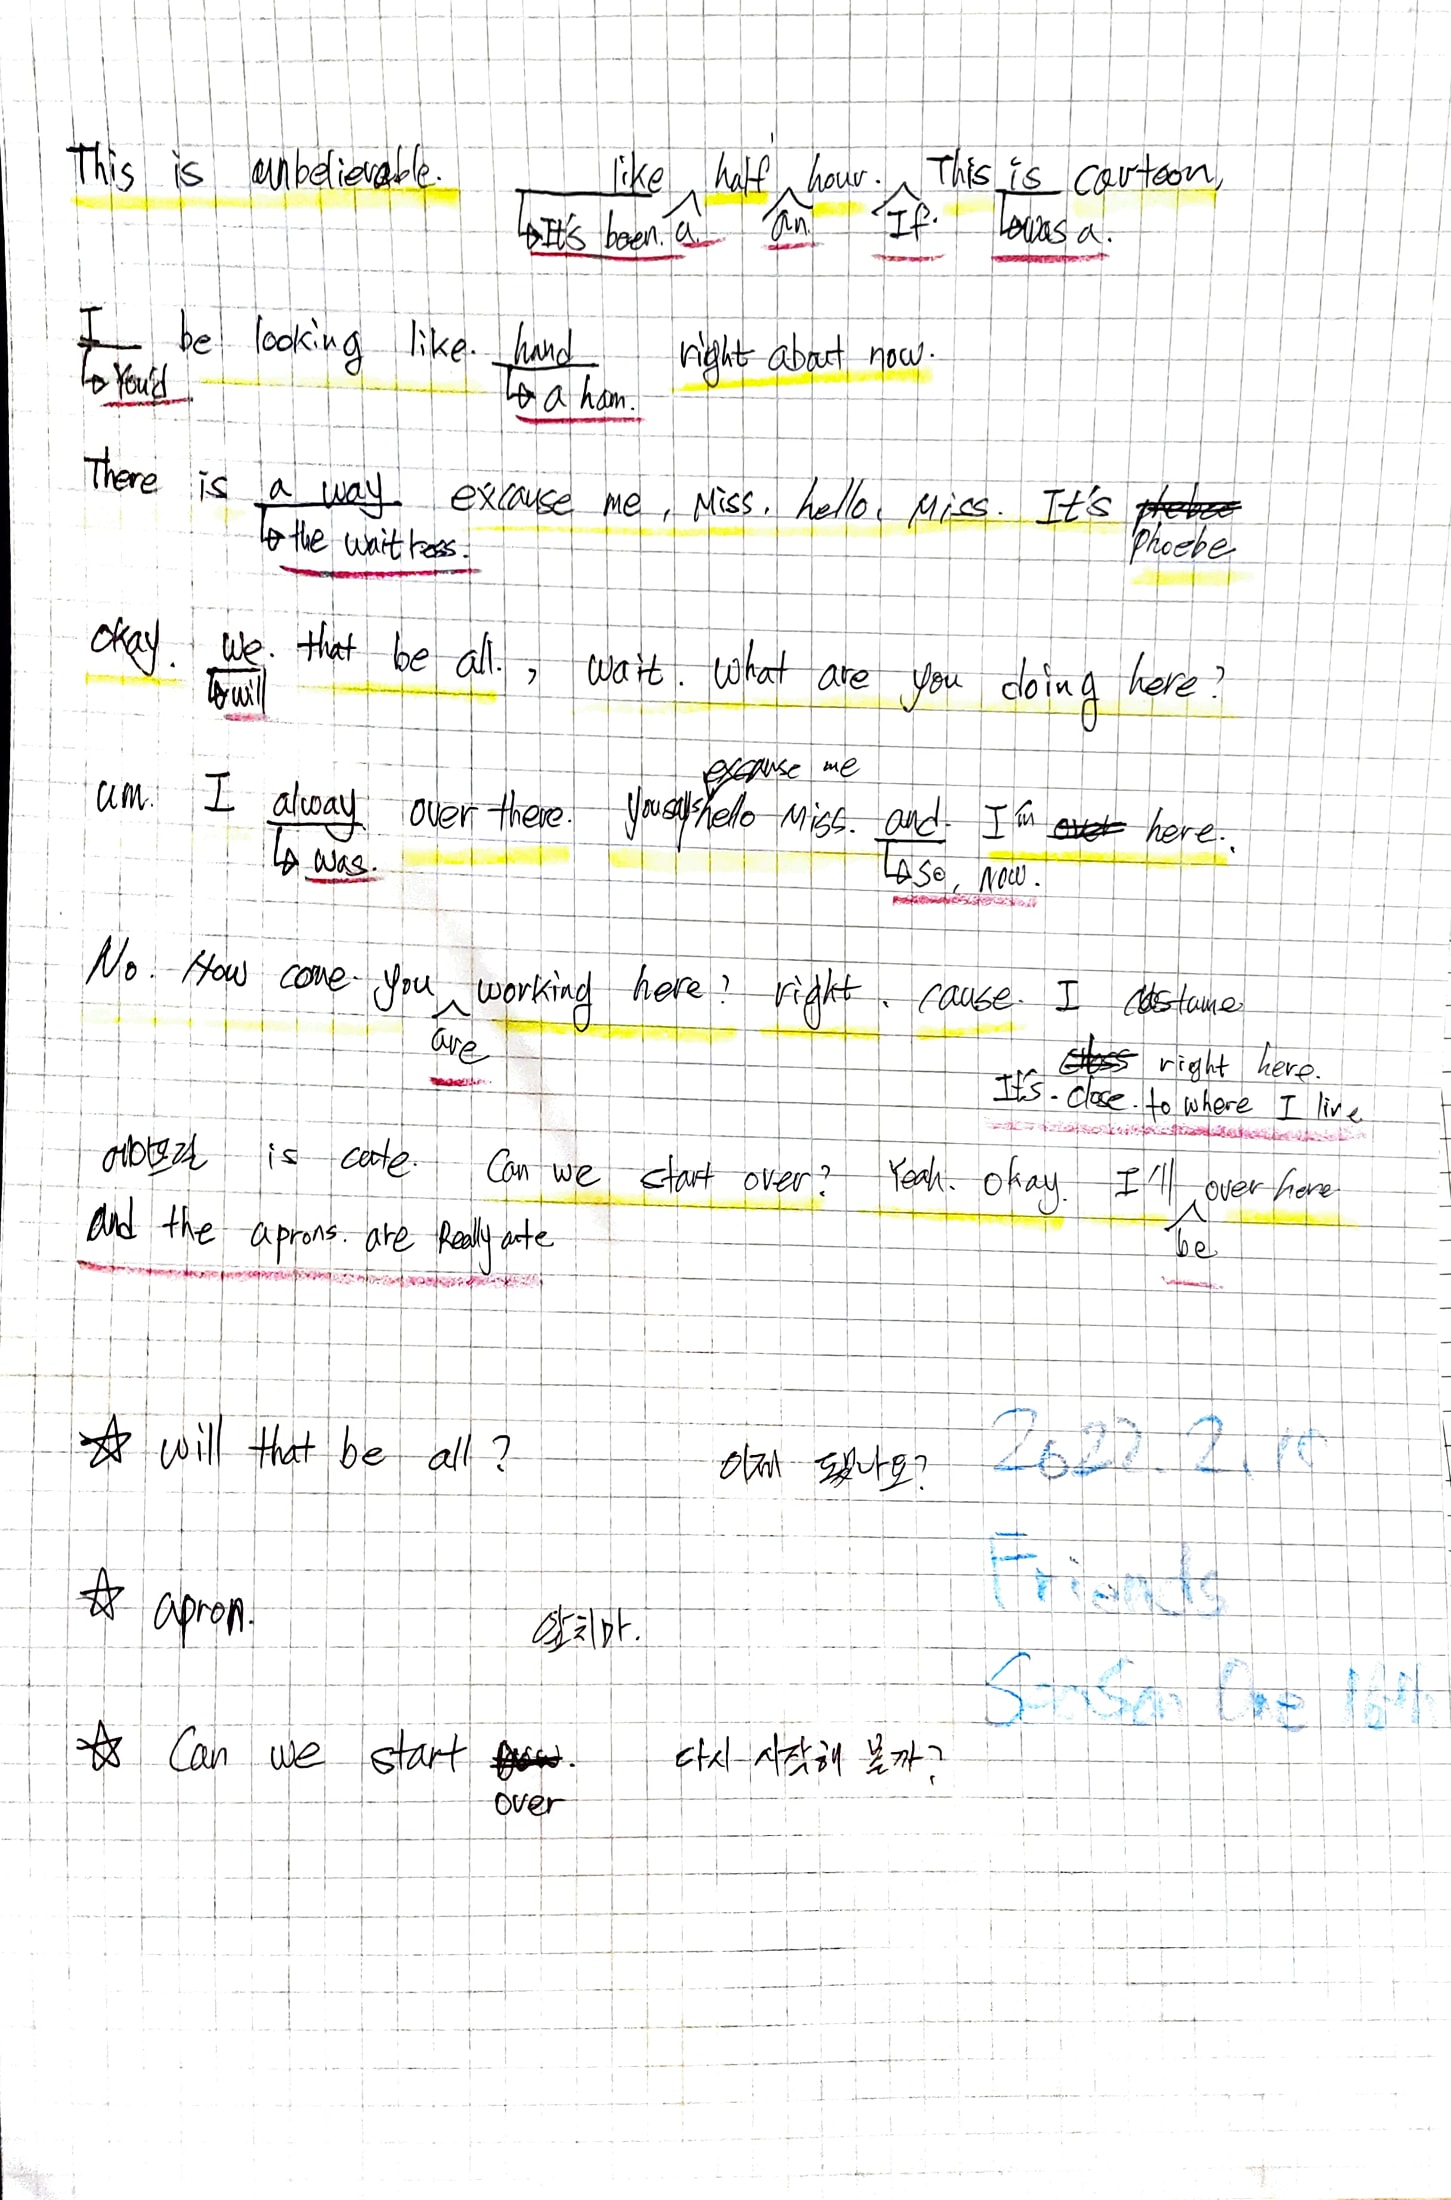 This is unbelievable. like half hour. This is cartoon,
It's been. a an If. was a.
I be looking like. hand right about now.
You'd a ham.
There is a way excause me, Miss. hello. Miss. It's
the waitress. Phoebe
okay. we. that be all. , wait. What are you doing here?
will
excause me
um. I alway over there. you says hello Miss. and. I'm over here.
was. so, now.
No. How come. you working here? right. cause. I costume
are
right here.
It's. close. to where I live
is cute. Can we start over? Yeah. okay. I'll over here
and the aprons. are Really cute be
☆ will that be all? 이제 됐나요? 2022.2.10
Friends
☆ apron. 앞치마.
Season One 16th
☆ Can we start 다시 시작해 볼까?
over